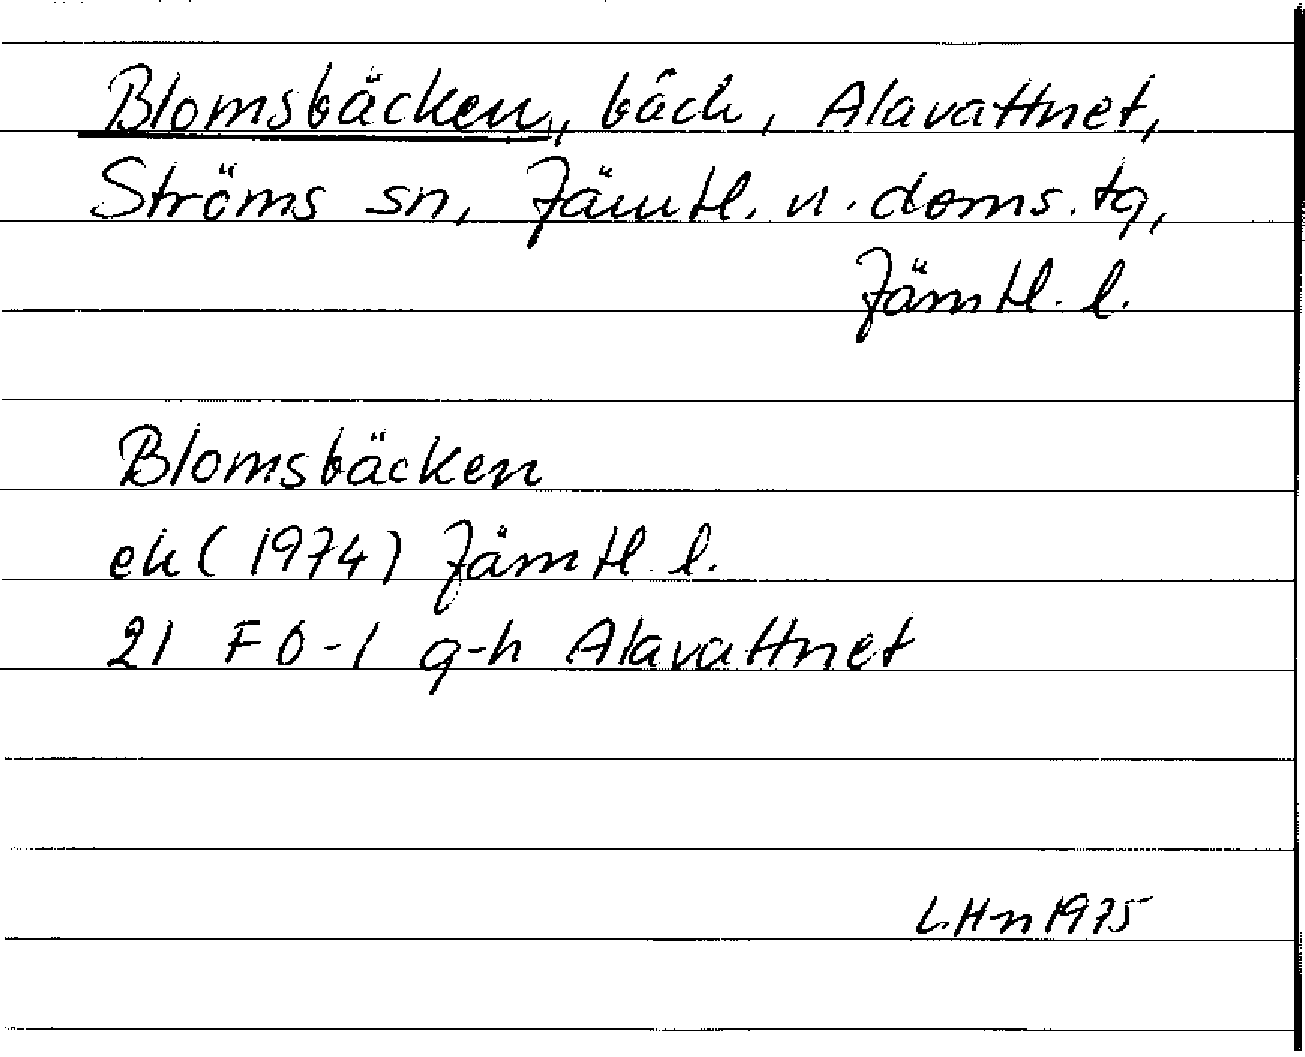 Blomsbäcken, bäck, Alavattnet,
Ströms sn, Jämtl. n. doms. tg,
Jämtl. l.
Blomsbäcken
ek (1974) Jämtl. l.
21 F 0-1 g-h Alavattnet
LHn 1975